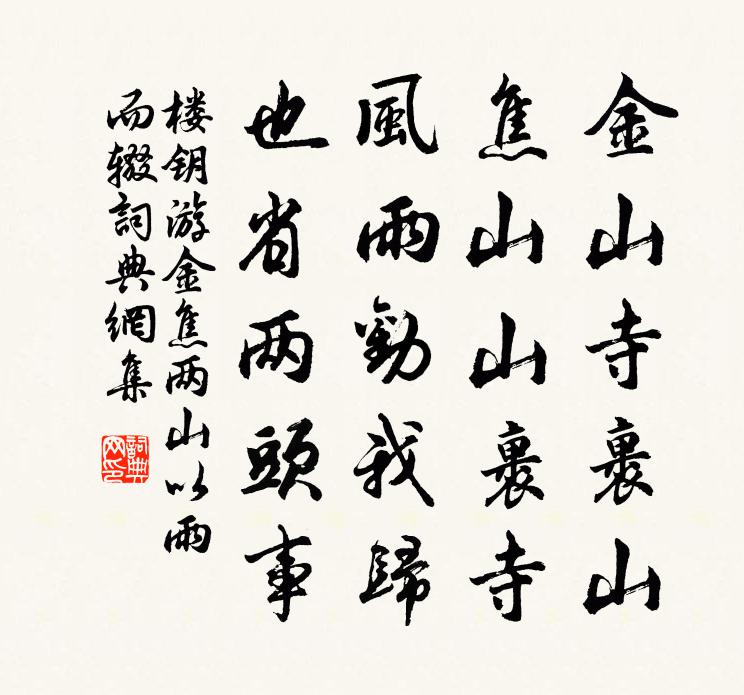 金山寺裹山
焦山山裹寺
風雨勸我歸
也省两頭事
楼钥游金焦两山以雨
而辍詞典網集
詞典
网印